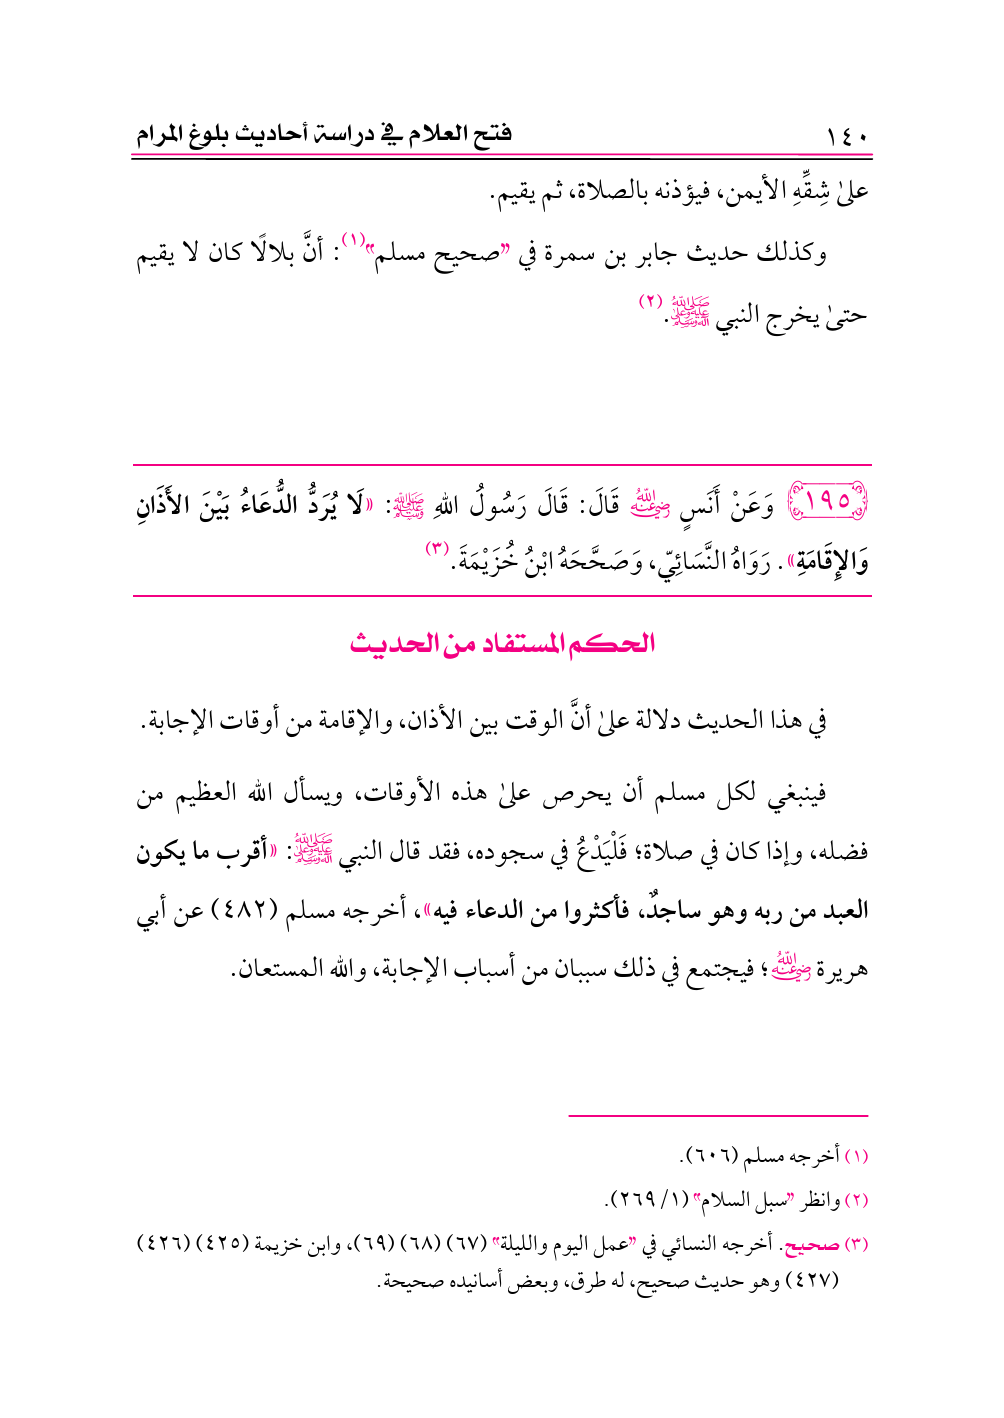 ١٤٠ فتح العلام في دراسة أحاديث بلوغ المرام
علىٰ شِقِّهِ الأيمن، فيؤذنه بالصلاة، ثم يقيم.
وكذلك حديث جابر بن سمرة في "صحيح مسلم"(١): أنَّ بلالًا كان لا يقيم
حتىٰ يخرج النبي ﷺ.(٢)
١٩٥ وَعَنْ أَنَسٍ رضي الله عنه قَالَ: قَالَ رَسُولُ اللهِ ﷺ: «لَا يُرَدُّ الدُّعَاءُ بَيْنَ الأَذَانِ
وَالإِقَامَةِ». رَوَاهُ النَّسَائِيّ، وَصَحَّحَهُ ابْنُ خُزَيْمَةَ.(٣)
الحكم المستفاد من الحديث
في هذا الحديث دلالة علىٰ أنَّ الوقت بين الأذان، والإقامة من أوقات الإجابة.
فينبغي لكل مسلم أن يحرص علىٰ هذه الأوقات، ويسأل الله العظيم من
فضله، وإذا كان في صلاة؛ فَلْيَدْعُ في سجوده، فقد قال النبي ﷺ: «أقرب ما يكون
العبد من ربه وهو ساجدٌ، فأكثروا من الدعاء فيه»، أخرجه مسلم (٤٨٢) عن أبي
هريرة رضي الله عنه؛ فيجتمع في ذلك سببان من أسباب الإجابة، والله المستعان.
(١) أخرجه مسلم (٦٠٦).
(٢) وانظر "سبل السلام" (١/ ٢٦٩).
(٣) صحيح. أخرجه النسائي في "عمل اليوم والليلة" (٦٧) (٦٨) (٦٩)، وابن خزيمة (٤٢٥) (٤٢٦)
(٤٢٧) وهو حديث صحيح، له طرق، وبعض أسانيده صحيحة.